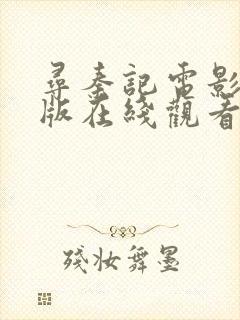 尋秦記電影
版在綫觀看
殘妝舞墨